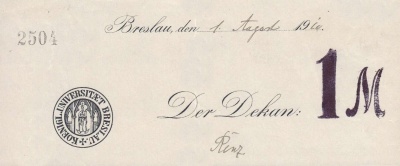 Breslau, den 1. August 1910.
2504
1 M
KOENIGL. UNIVERSITAET BRESLAU
Der Dekan: